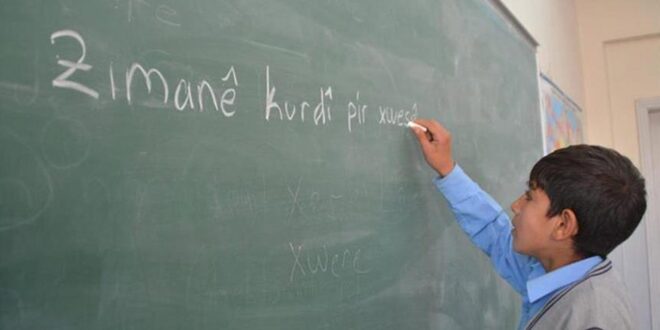 Zimanê kurdî pir xweş
xwere